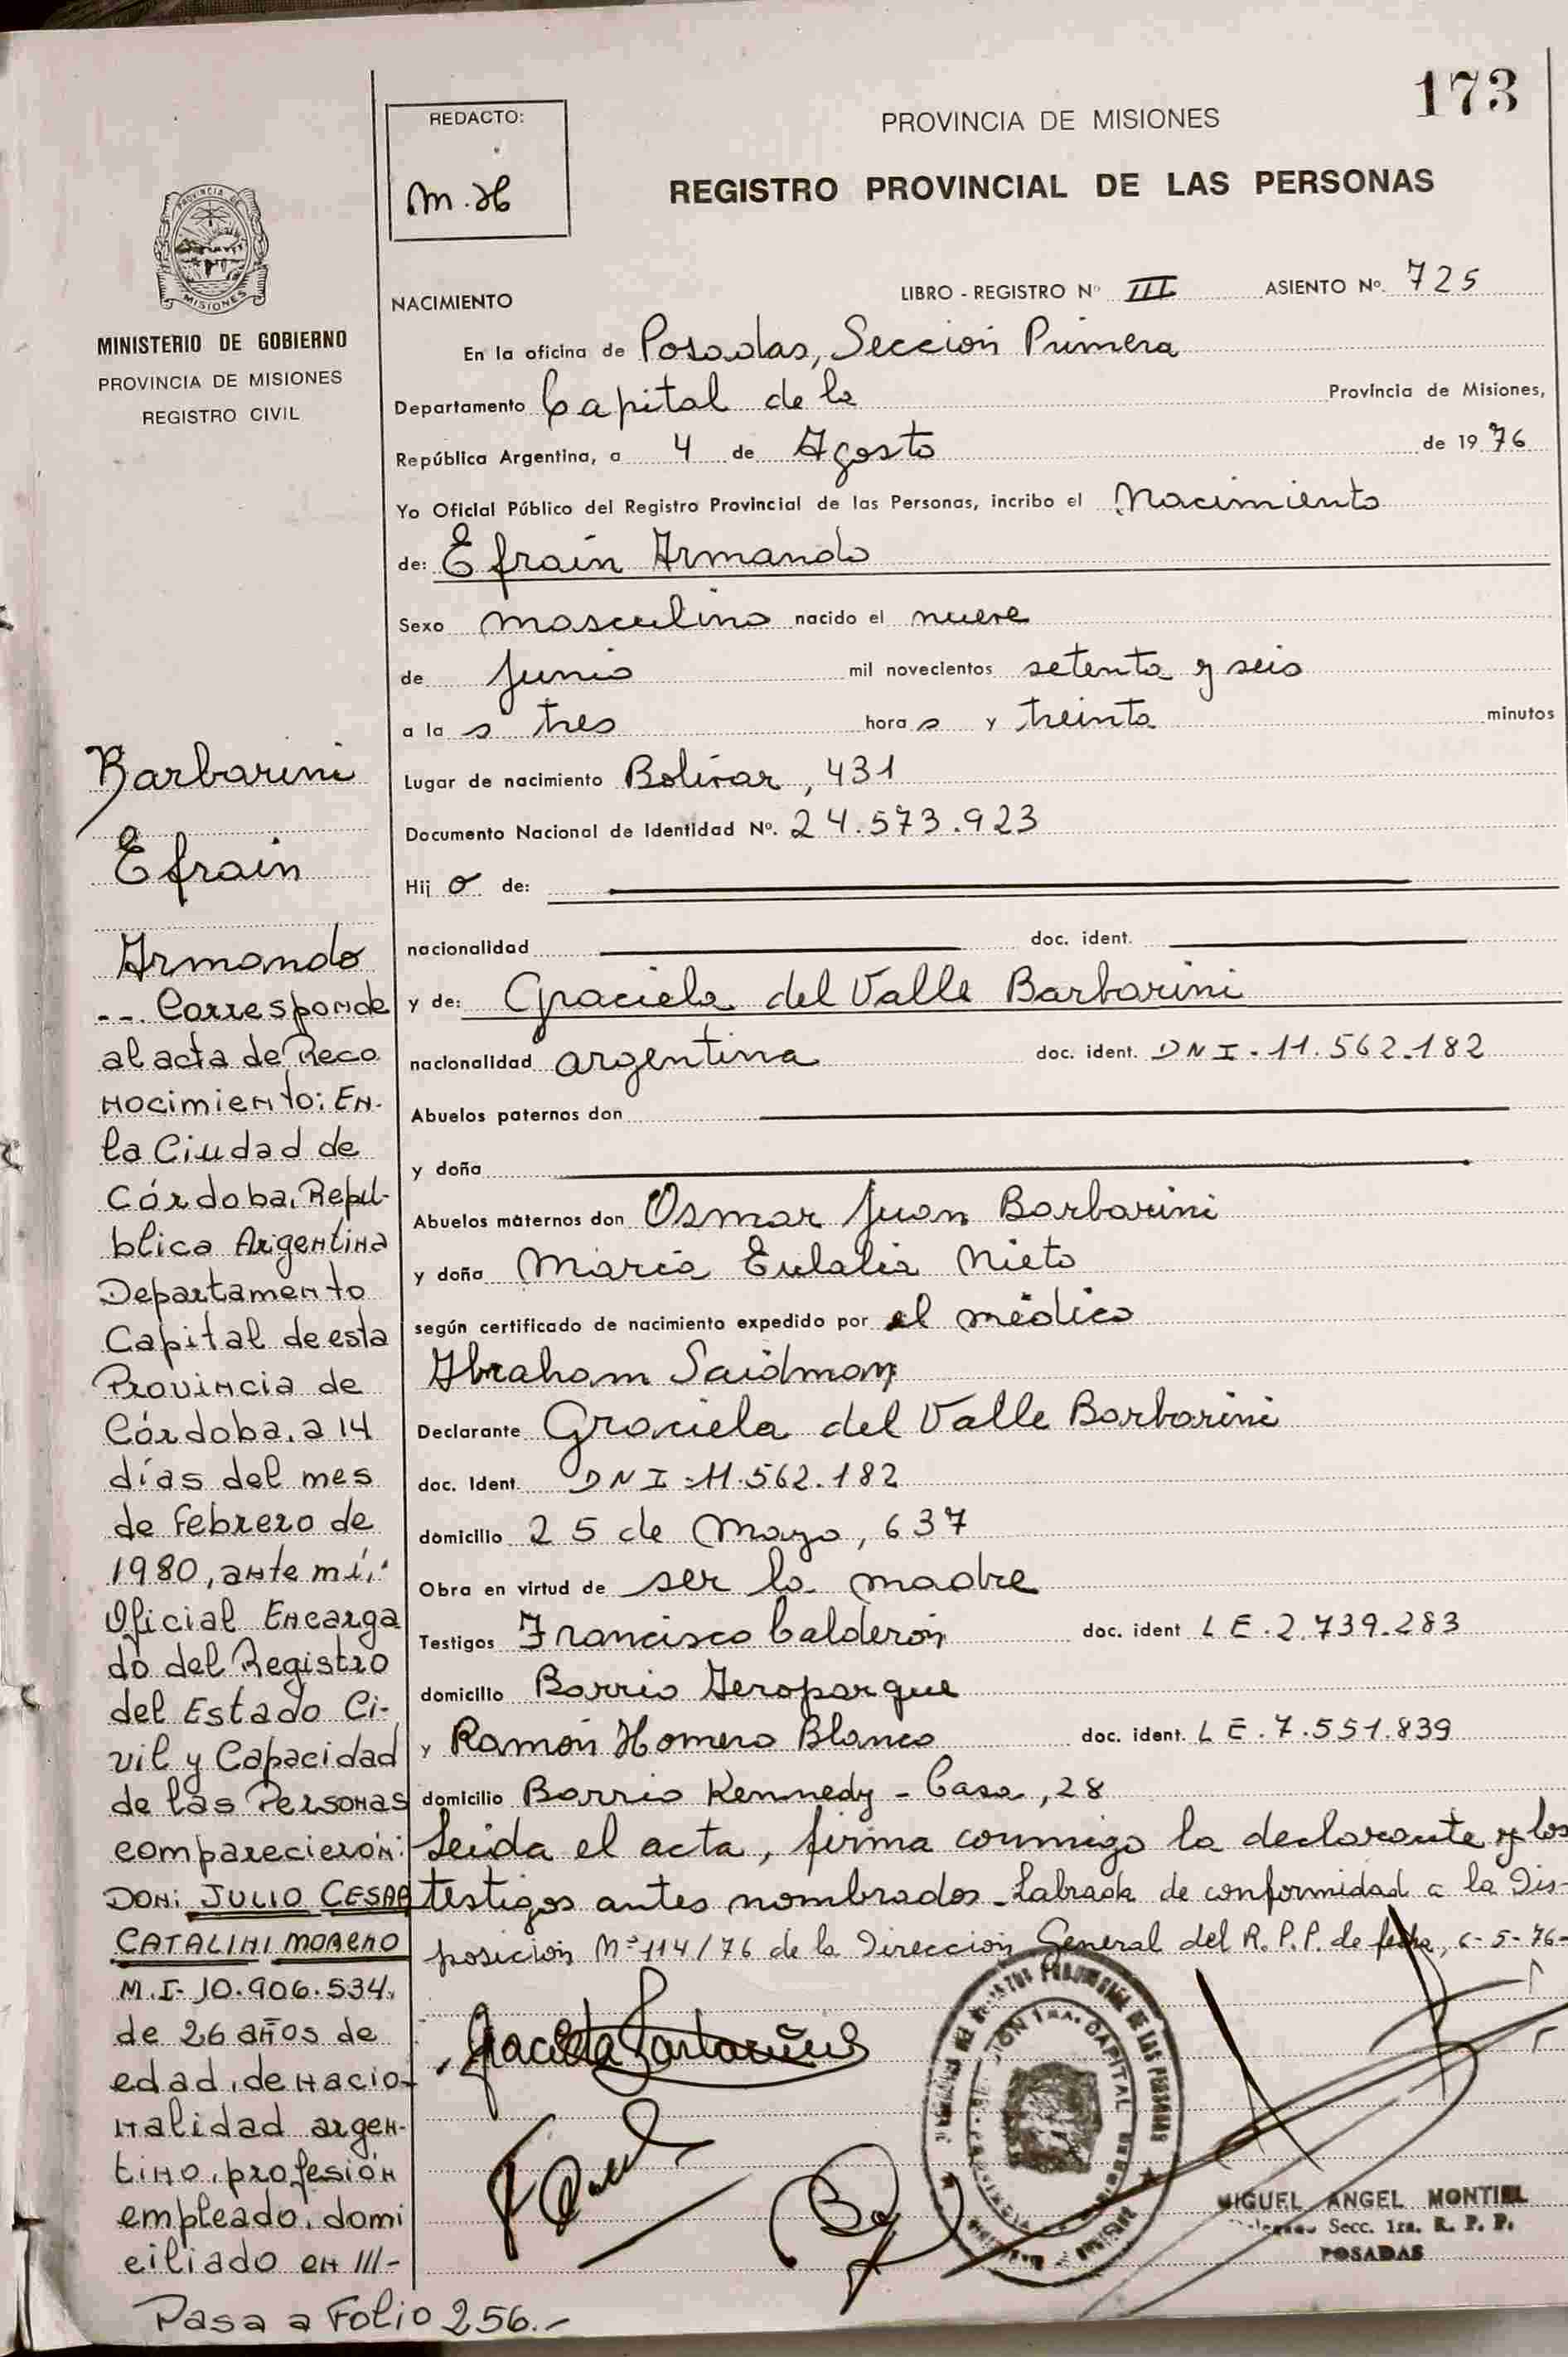 173
REDACTO:
M.H
PROVINCIA DE MISIONES
REGISTRO PROVINCIAL DE LAS PERSONAS
PROVINCIA DE
MISIONES
MINISTERIO DE GOBIERNO
PROVINCIA DE MISIONES
REGISTRO CIVIL
NACIMIENTO
LIBRO - REGISTRO Nº III ASIENTO Nº. 725
En la oficina de Posadas, Sección Primera
Departamento Capital de la Provincia de Misiones,
República Argentina, a 4 de Agosto de 1976
Yo Oficial Público del Registro Provincial de las Personas, incribo el Nacimiento
de: Efraín Armando
Sexo masculino nacido el nueve
de Junio mil novecientos setenta y seis
a la s tres hora s y treinta minutos
Lugar de nacimiento Bolívar, 431
Documento Nacional de Identidad Nº. 24.573.923
Hij o de:
nacionalidad doc. ident.
y de: Graciela del Valle Barbarini
nacionalidad argentina doc. ident. DNI-11.562.182
Abuelos paternos don
y doña
Abuelos maternos don Osmar Juan Barbarini
y doña María Eulalia Nieto
según certificado de nacimiento expedido por el médico
Abraham Saidman
Declarante Graciela del Valle Barbarini
doc. Ident. DNI-11.562.182
domicilio 25 de Mayo, 637
Obra en virtud de ser la madre
Testigos Francisco Calderón doc. ident LE.2.739.283
domicilio Barrio Aeroparque
y Ramón Homero Blanco doc. ident. LE.7.551.839
domicilio Barrio Kennedy - Casa, 28
Leída el acta, firma conmigo la declarante y los
testigos antes nombrados. Labrada de conformidad a la Dis-
posición Nº 114/76 de la Dirección General del R.P.P. de fecha, 6-5-76-
Barbarini
Efraín
Armando
-- Corresponde
al acta de Reco
nocimiento: En
la Ciudad de
Córdoba, Repú-
blica Argentina
Departamento
Capital de esta
Provincia de
Córdoba, a 14
días del mes
de Febrero de
1980, ante mí,
Oficial Encarga
do del Registro
del Estado Ci-
vil y Capacidad
de las Personas
comparecieron:
DON: JULIO CESAR
CATALINI MORENO
M.I-10.906.534,
de 26 años de
edad, de nacio-
nalidad argen-
tino, profesión
empleado, domi
ciliado en ///-
Pasa a Folio 256.-
Graciela Barbarini
MIGUEL ANGEL MONTIEL
Secc. 1ra. R. P. P.
POSADAS